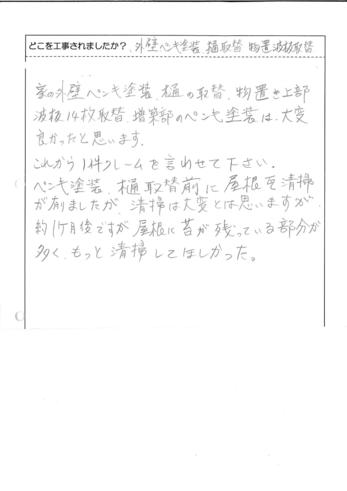 どこを工事されましたか? 外壁ペンキ塗装、樋取替、物置波板取替
家の外壁ペンキ塗装、樋の取替、物置き上部
波板14枚取替、増築部のペンキ塗装は、大変
良かったと思います。
これから1件クレームを言わせて下さい。
ペンキ塗装、樋取替前に屋根を清掃
が有りましたが、清掃は大変とは思いますが
約1ケ月後ですが屋根に苔が残っている部分が
多く、もっと清掃してほしかった。